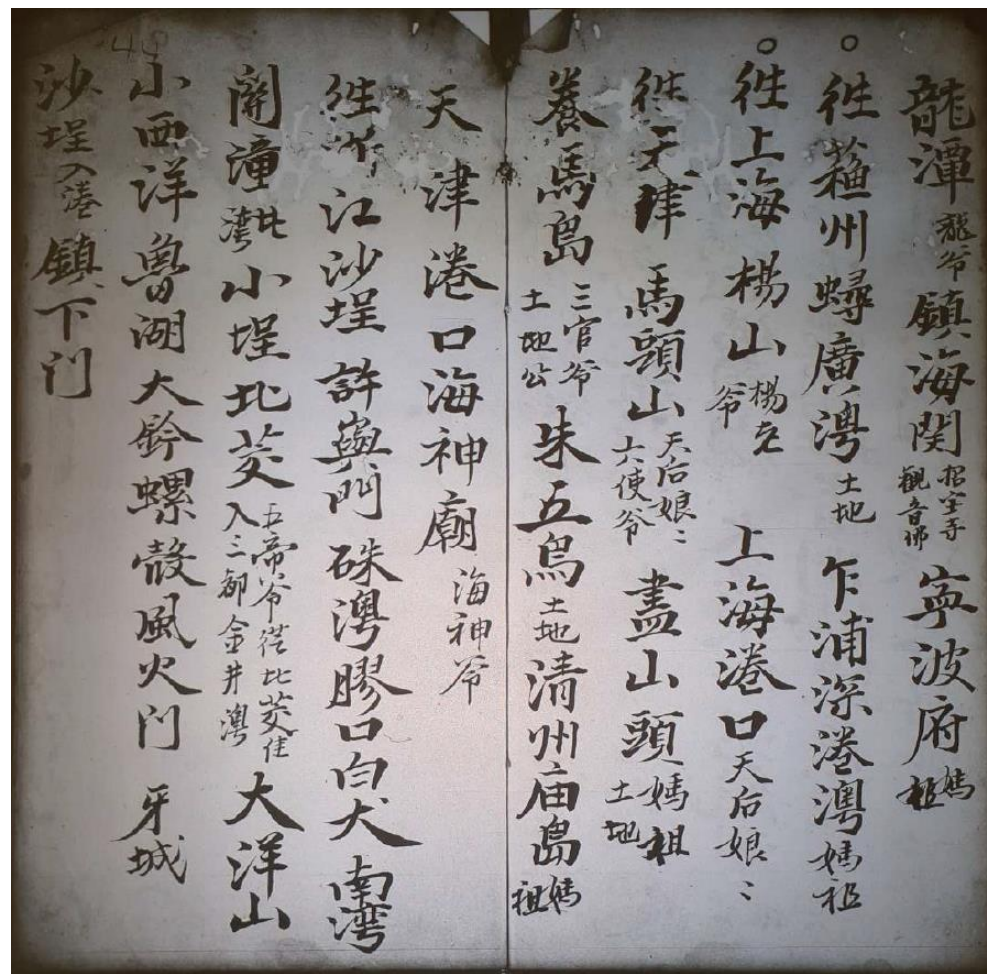 龍潭龍爷鎮海関招宝寺觀音佛寧波府媽祖
徃蘓州蟳廣澚土地乍浦深港澚媽祖
徃上海楊山楊老爷上海港口天后娘〻
徃天津馬頭山天后娘〻六使爷盡山頭媽祖土地
養馬島三官爷土地公朱五島土地清州庙島媽祖
天津港口海神廟海神爷
徃浙江沙埕許嶼門硃澚膠口白犬南湾
閞潼北湾小埕北茭五帝爷徃北茭佳入三都金井澚大洋山
小西洋魯湖大鈴螺殼風火门牙城
沙埕入港鎮下门